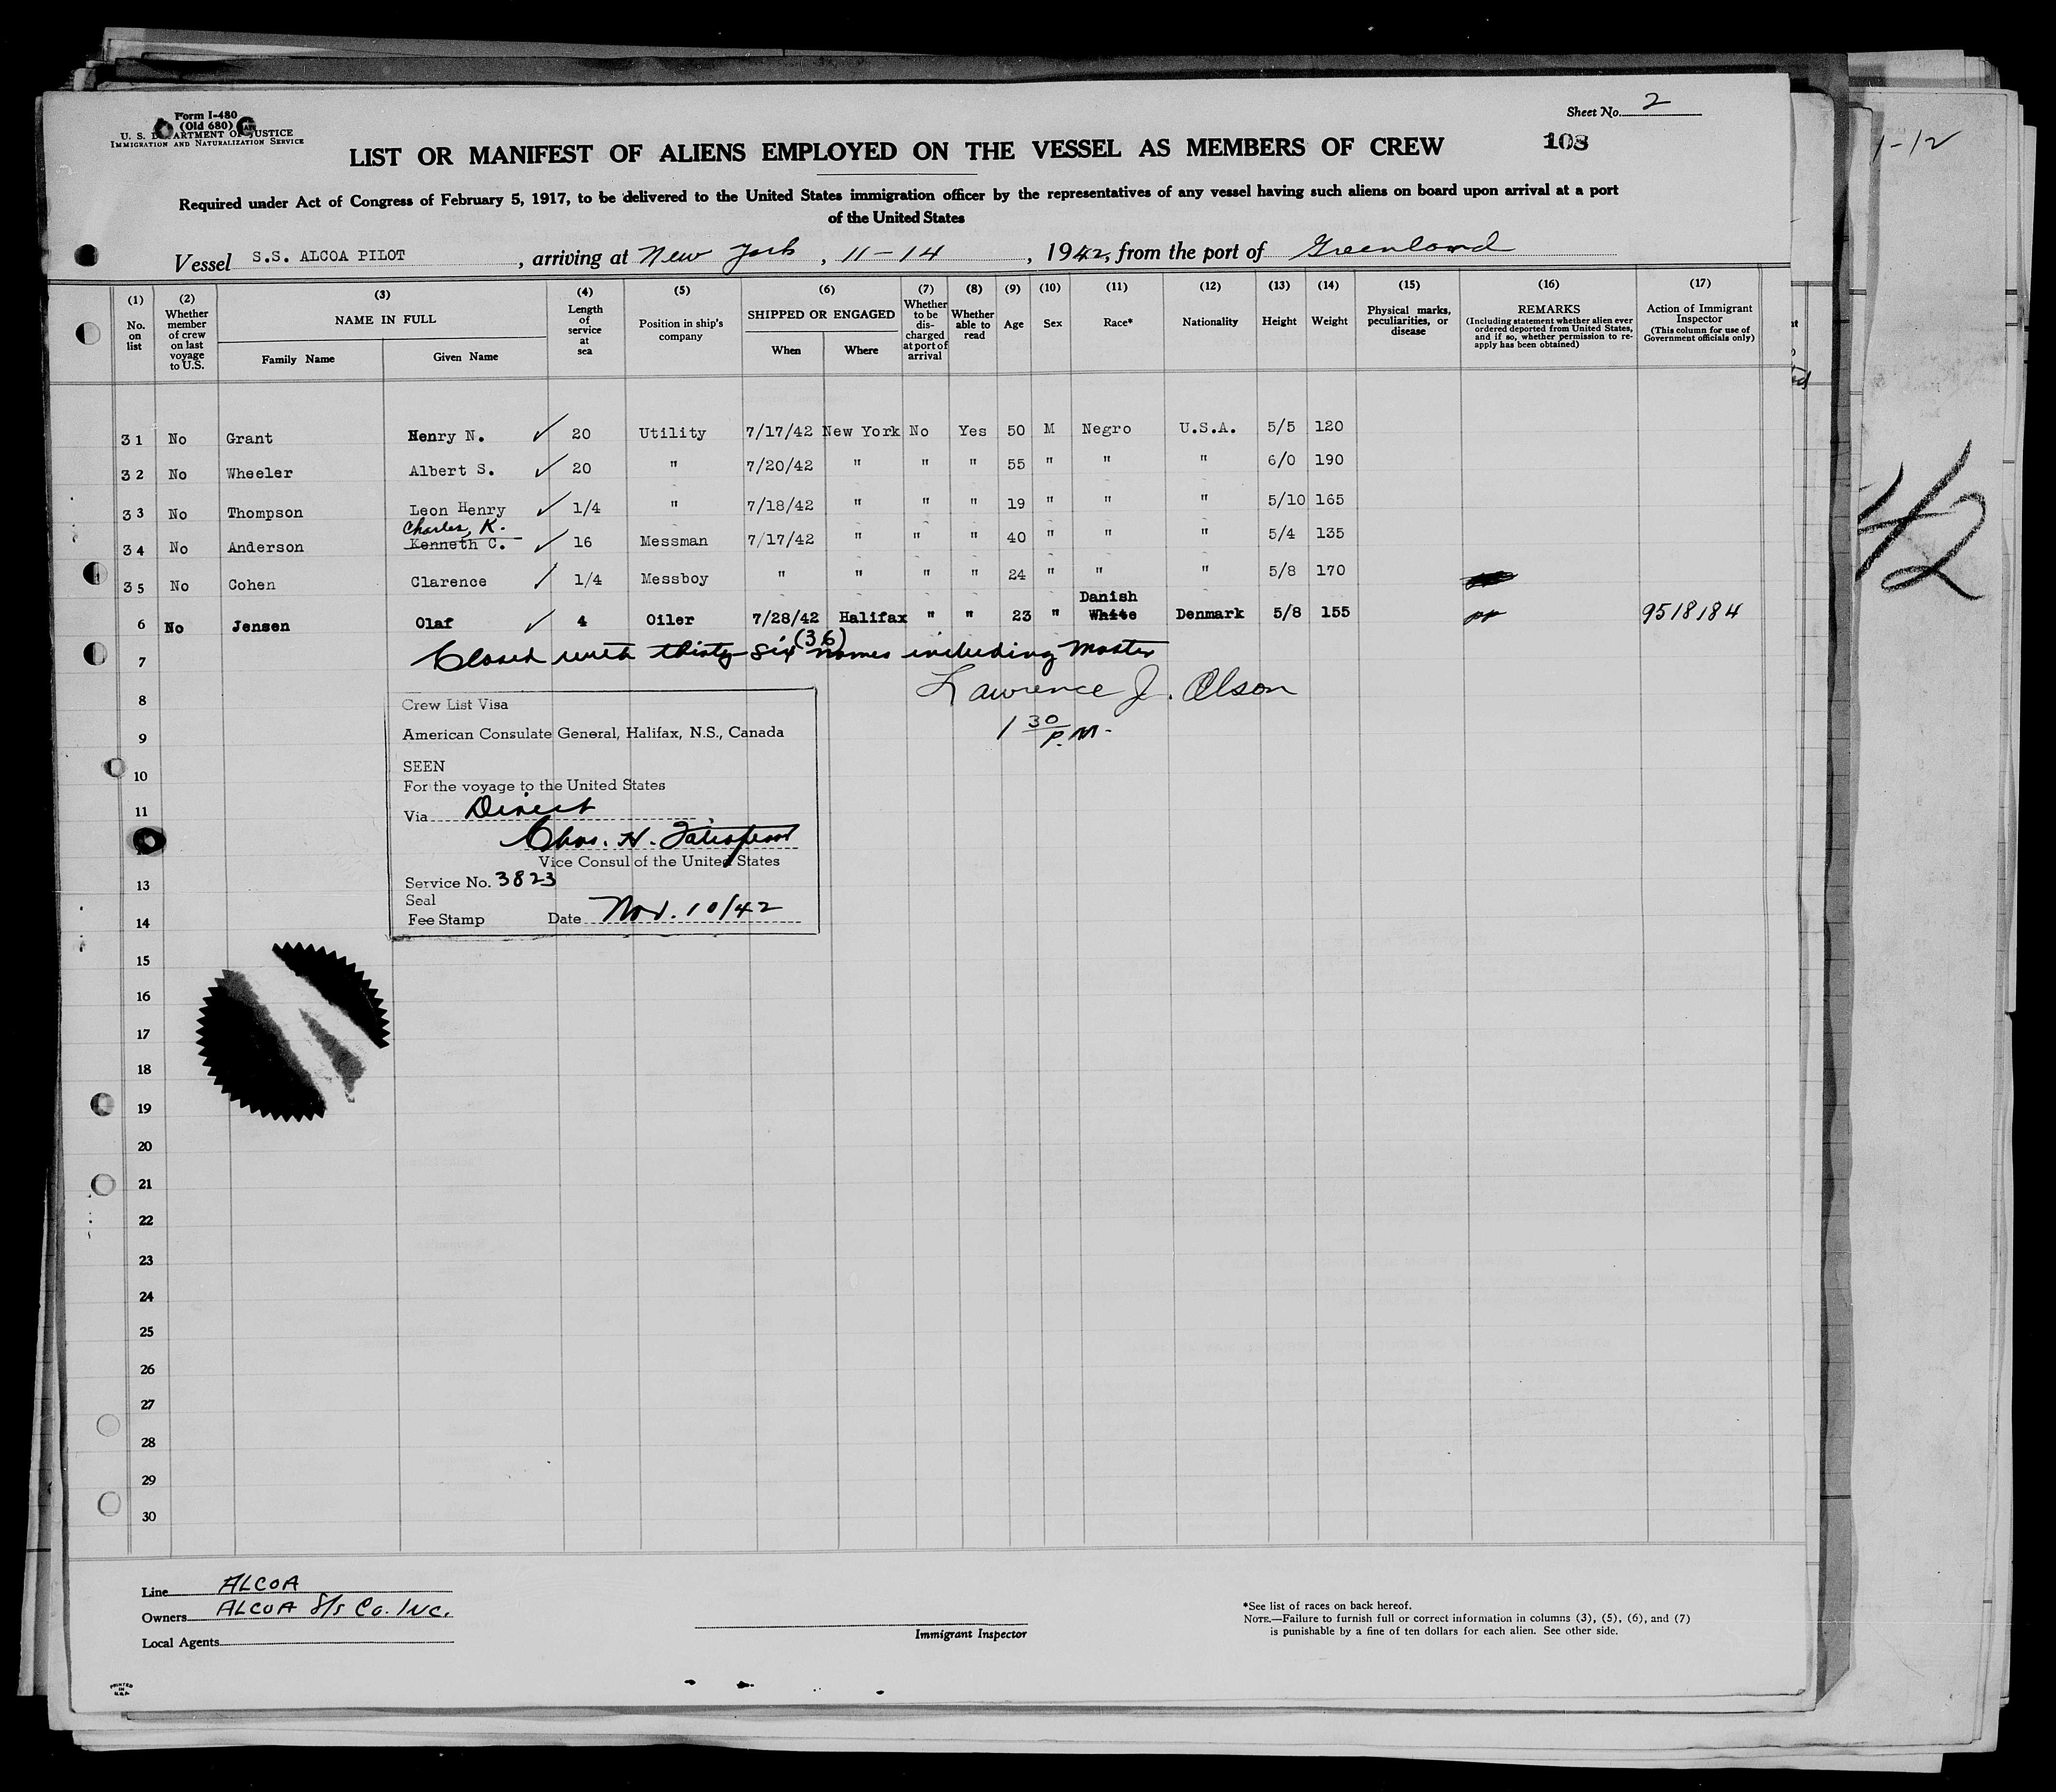 Form I-480
(Old 680)
U. S. DEPARTMENT OF JUSTICE
IMMIGRATION AND NATURALIZATION SERVICE
Sheet No. 2
108
LIST OR MANIFEST OF ALIENS EMPLOYED ON THE VESSEL AS MEMBERS OF CREW
Required under Act of Congress of February 5, 1917, to be delivered to the United States immigration officer by the representatives of any vessel having such aliens on board upon arrival at a port
of the United States
Vessel S.S. ALCOA PILOT, arriving at New York, 11-14, 1942, from the port of Greenland
(1) No. on list
(2) Whether member of crew on last voyage to U.S.
(3) NAME IN FULL
Family Name
Given Name
(4) Length of service at sea
(5) Position in ship's company
(6) SHIPPED OR ENGAGED
When
Where
(7) Whether to be discharged at port of arrival
(8) Whether able to read
(9) Age
(10) Sex
(11) Race*
(12) Nationality
(13) Height
(14) Weight
(15) Physical marks, peculiarities, or disease
(16) REMARKS
(Including statement whether alien ever ordered deported from United States, and if so, whether permission to re-apply has been obtained)
(17) Action of Immigrant Inspector
(This column for use of Government officials only)
31 No Grant Henry N. ✓ 20 Utility 7/17/42 New York No Yes 50 M Negro U.S.A. 5/5 120
32 No Wheeler Albert S. ✓ 20 " 7/20/42 " " " 55 " " " 6/0 190
33 No Thompson Leon Henry ✓ 1/4 " 7/18/42 " " " 19 " " " 5/10 165
Charles, K.
34 No Anderson Kenneth C. ✓ 16 Messman 7/17/42 " " " 40 " " " 5/4 135
35 No Cohen Clarence ✓ 1/4 Messboy " " " " 24 " " " 5/8 170
Danish
6 No Jensen Olaf ✓ 4 Oiler 7/28/42 Halifax " " 23 " White Denmark 5/8 155 pp 9518184
7 Closed with thirty-six (36) names including master
8 Lawrence J. Olson
9 1 30 P.M.
Crew List Visa
American Consulate General, Halifax, N.S., Canada
SEEN
For the voyage to the United States
Via Direct
Chas. H.
Vice Consul of the United States
Service No. 3823
Seal
Fee Stamp Date Nov. 10/42
10
11
13
14
15
16
17
18
19
20
21
22
23
24
25
26
27
28
29
30
Line ALCOA
Owners ALCOA S/S Co. INC.
Local Agents
Immigrant Inspector
*See list of races on back hereof.
NOTE.—Failure to furnish full or correct information in columns (3), (5), (6), and (7)
is punishable by a fine of ten dollars for each alien. See other side.
PRINTED
IN
U.S.A.
1-12
42